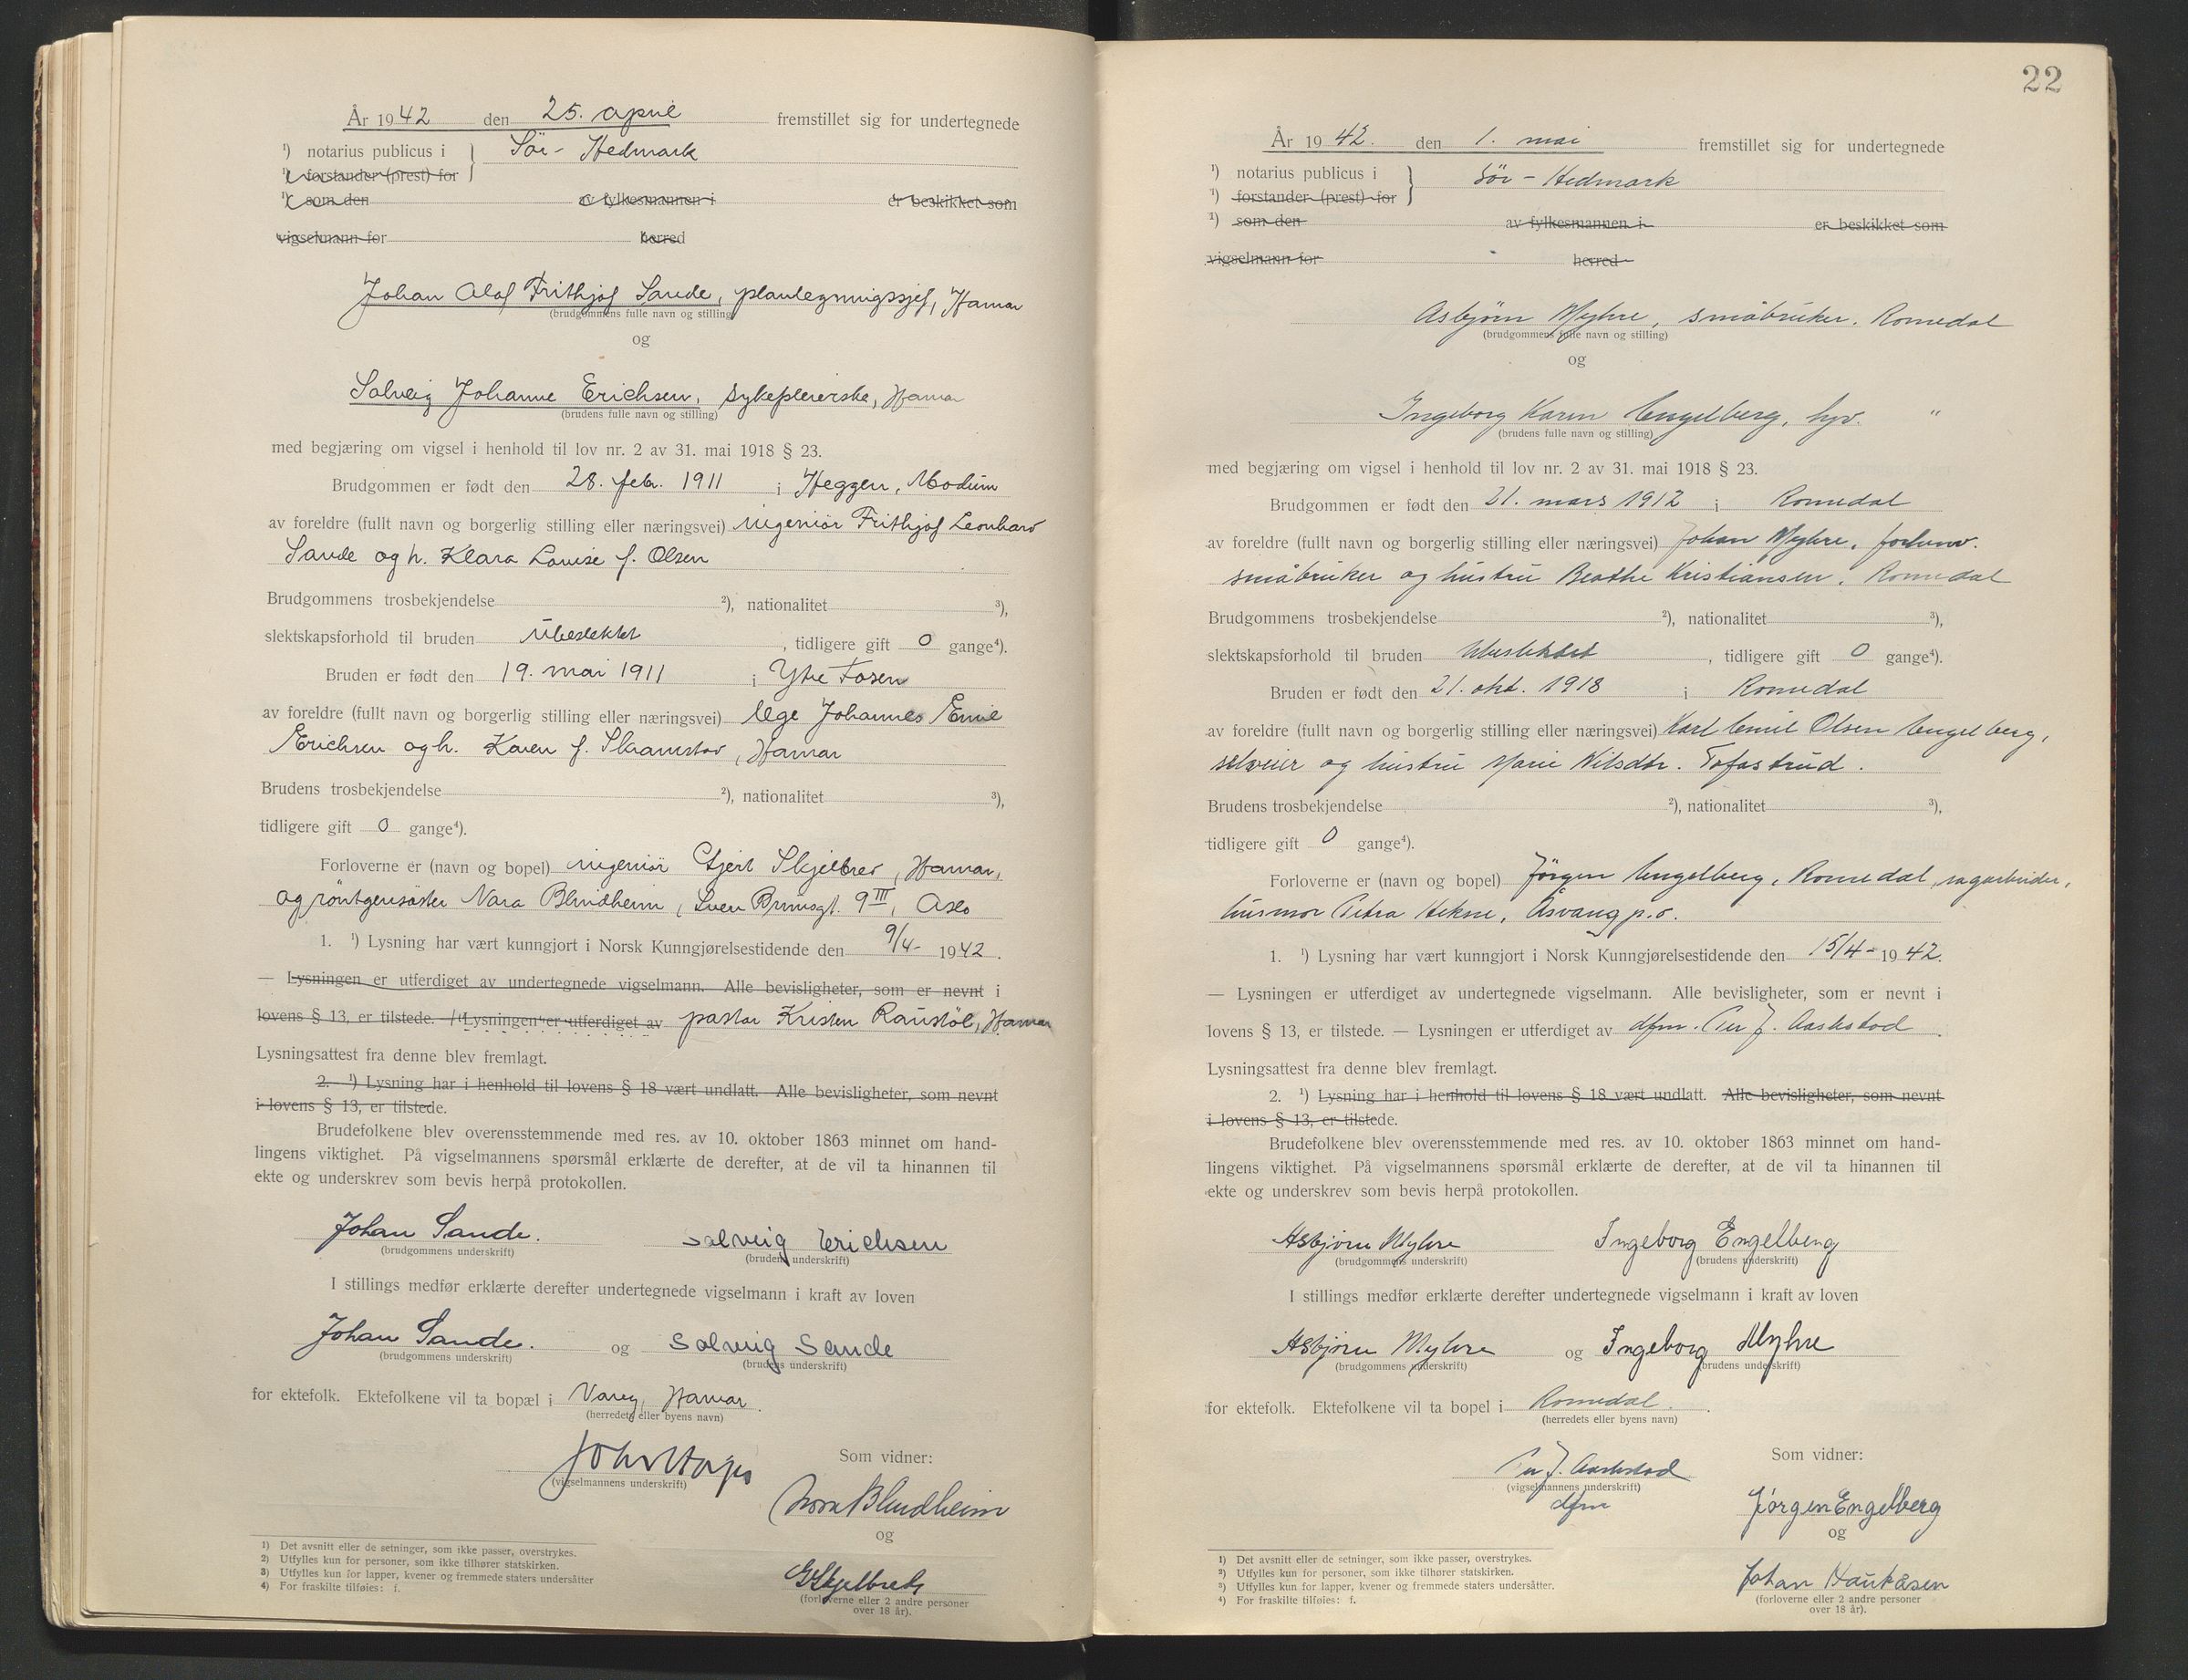 År 1942 den 25. april fremstillet sig for undertegnede
¹) notarius publicus i Sör - Hedmark
¹) forstander (prest) for
¹) som den av fylkesmannen i er beskikket som
vigselmann for herred
Johan Olaf Frithjof Sande, planlegningssjef, Hamar
(brudgommens fulle navn og stilling)
og
Solveig Johanne Erichsen, sykepleierske, Hamar
(brudens fulle navn og stilling)
med begjæring om vigsel i henhold til lov nr. 2 av 31. mai 1918 § 23.
Brudgommen er født den 28. febr. 1911 i Heggen, Modum
av foreldre (fullt navn og borgerlig stilling eller næringsvei) ingeniör Frithjof Leonhard
Sande og h. Klara Louise f. Olsen
Brudgommens trosbekjendelse ²), nationalitet ³),
slektskapsforhold til bruden Ubeslektet, tidligere gift 0 gange⁴).
Bruden er født den 19. mai 1911 i Ytre Fosen
av foreldre (fullt navn og borgerlig stilling eller næringsvei) lege Johannes Emil
Erichsen og h. Karen f. Skramstad, Hamar
Brudens trosbekjendelse ²), nationalitet ³),
tidligere gift 0 gange⁴).
Forloverne er (navn og bopel) ingeniör Gjert Skjelbred, Hamar,
og röntgensöster Nora Blindheim, Sven Brunsgt. 9 III, Oslo
1. ¹) Lysning har vært kunngjort i Norsk Kunngjørelsestidende den 9/4- 1942.
— Lysningen er utferdiget av undertegnede vigselmann. Alle bevisligheter, som er nevnt i
lovens § 13, er tilstede. — Lysningen er utferdiget av pastor Kristen Raustöl, Hamar
Lysningsattest fra denne blev fremlagt.
2. ¹) Lysning har i henhold til lovens § 18 vært undlatt. Alle bevisligheter, som nevnt
i lovens § 13, er tilstede.
Brudefolkene blev overensstemmende med res. av 10. oktober 1863 minnet om hand-
lingens viktighet. På vigselmannens spørsmål erklærte de derefter, at de vil ta hinannen til
ekte og underskrev som bevis herpå protokollen.
Johan Sande. Solveig Erichsen
(brudgommens underskrift) (brudens underskrift)
I stillings medfør erklærte derefter undertegnede vigselmann i kraft av loven
Johan Sande. og Solveig Sande
(brudgommens underskrift) (brudens underskrift)
for ektefolk. Ektefolkene vil ta bopæl i Vang, Hamar.
(herredets eller byens navn)
Som vidner:
(vigselmannens underskrift)
Nora Blindheim
og
G Skjelbred
(forloverne eller 2 andre personer
over 18 år).
1) Det avsnitt eller de setninger, som ikke passer, overstrykes.
2) Utfylles kun for personer, som ikke tilhører statskirken.
3) Utfylles kun for lapper, kvener og fremmede staters undersåtter
4) For fraskilte tilføies: f.
22
År 1942. den 1. mai fremstillet sig for undertegnede
¹) notarius publicus i Sör - Hedmark
¹) forstander (prest) for
¹) som den av fylkesmannen i er beskikket som
vigselmann for herred
Asbjörn Myhre, småbruker. Romedal
(brudgommens fulle navn og stilling)
og
Ingeborg Karin Engelberg, hyv. "
(brudens fulle navn og stilling)
med begjæring om vigsel i henhold til lov nr. 2 av 31. mai 1918 § 23.
Brudgommen er født den 21. mars 1912 i Romedal
av foreldre (fullt navn og borgerlig stilling eller næringsvei) Johan Myhre, forhenv.
småbruker og hustru Beathe Kristiansen. Romedal
Brudgommens trosbekjendelse ²), nationalitet ³),
slektskapsforhold til bruden Ubeslektet, tidligere gift 0 gange⁴).
Bruden er født den 21. okt. 1918 i Romedal
av foreldre (fullt navn og borgerlig stilling eller næringsvei) Karl Emil Olsen Engelberg,
selveier og hustru Marie Nilsdtr. Tofastrud.
Brudens trosbekjendelse ²), nationalitet ³),
tidligere gift 0 gange⁴).
Forloverne er (navn og bopel) Jörgen Engelberg, Romedal, sagarbeider,
husmor Petra Hekne, Åsvang p.o.
1. ¹) Lysning har vært kunngjort i Norsk Kunngjørelsestidende den 15/4- 1942.
— Lysningen er utferdiget av undertegnede vigselmann. Alle bevisligheter, som er nevnt i
lovens § 13, er tilstede. — Lysningen er utferdiget av dfm. Per J. Aaskstad.
Lysningsattest fra denne blev fremlagt.
2. ¹) Lysning har i henhold til lovens § 18 vært undlatt. Alle bevisligheter, som nevnt
i lovens § 13, er tilstede.
Brudefolkene blev overensstemmende med res. av 10. oktober 1863 minnet om hand-
lingens viktighet. På vigselmannens spørsmål erklærte de derefter, at de vil ta hinannen til
ekte og underskrev som bevis herpå protokollen.
Asbjörn Myhre Ingeborg Engelberg
(brudgommens underskrift) (brudens underskrift)
I stillings medfør erklærte derefter undertegnede vigselmann i kraft av loven
Asbjörn Myhre og Ingeborg Myhre
(brudgommens underskrift) (brudens underskrift)
for ektefolk. Ektefolkene vil ta bopel i Romedal.
(herredets eller byens navn)
Som vidner:
Per J. Aaskstad
(vigselmannens underskrift)
dfm
Jörgen Engelberg
og
Johan Haukåsen
(forloverne eller 2 andre personer
over 18 år).
¹) Det avsnitt eller de setninger, som ikke passer, overstrykes.
²) Utfylles kun for personer, som ikke tilhører statskirken.
³) Utfylles kun for lapper, kvener og fremmede staters undersåtter.
⁴) For fraskilte tilføies: f.